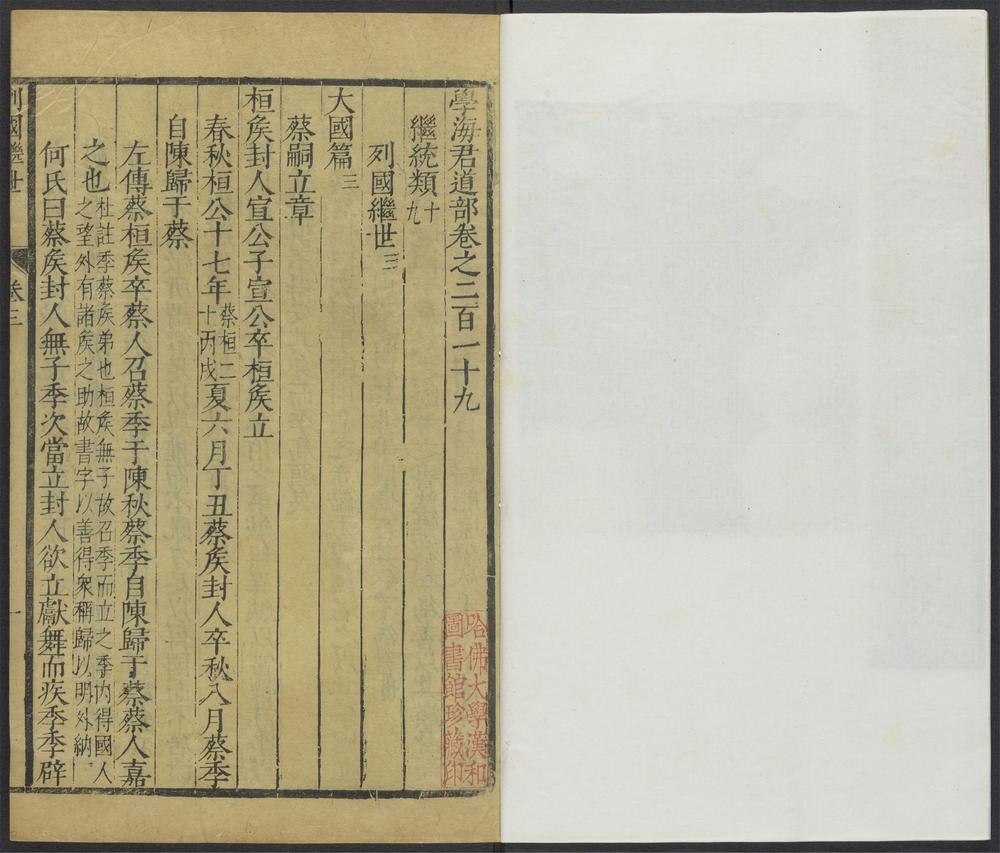 學海君道部卷之二百一十九
繼統類十九
列國繼世三
大國篇三
蔡嗣立章
桓矦封人宣公子宣公卒桓矦立
春秋桓公十七年蔡桓二十丙戌夏六月丁丑蔡矦封人卒秋八月蔡季
自陳歸于蔡
左傳蔡桓矦卒蔡人召蔡季于陳秋蔡季自陳歸于蔡蔡人嘉
之也杜註季蔡矦弟也桓矦無子故召季而立之季内得國人之望外有諸矦之助故書字以善得衆稱歸以明外納
何氏曰蔡矦封人無子季次當立封人欲立獻舞而疾季季辟
列國繼世
卷三
一
哈佛大學漢和圖書館珍藏印